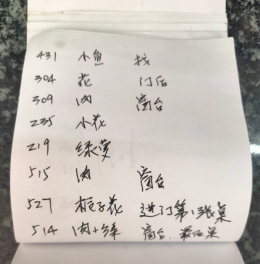 431 小鱼 找
304 花 门后
309 肉 窗台
235 小花
219 绿萝
515 肉 窗台
527 栀子花 进门第1张桌
514 肉+绿 窗台 最后桌